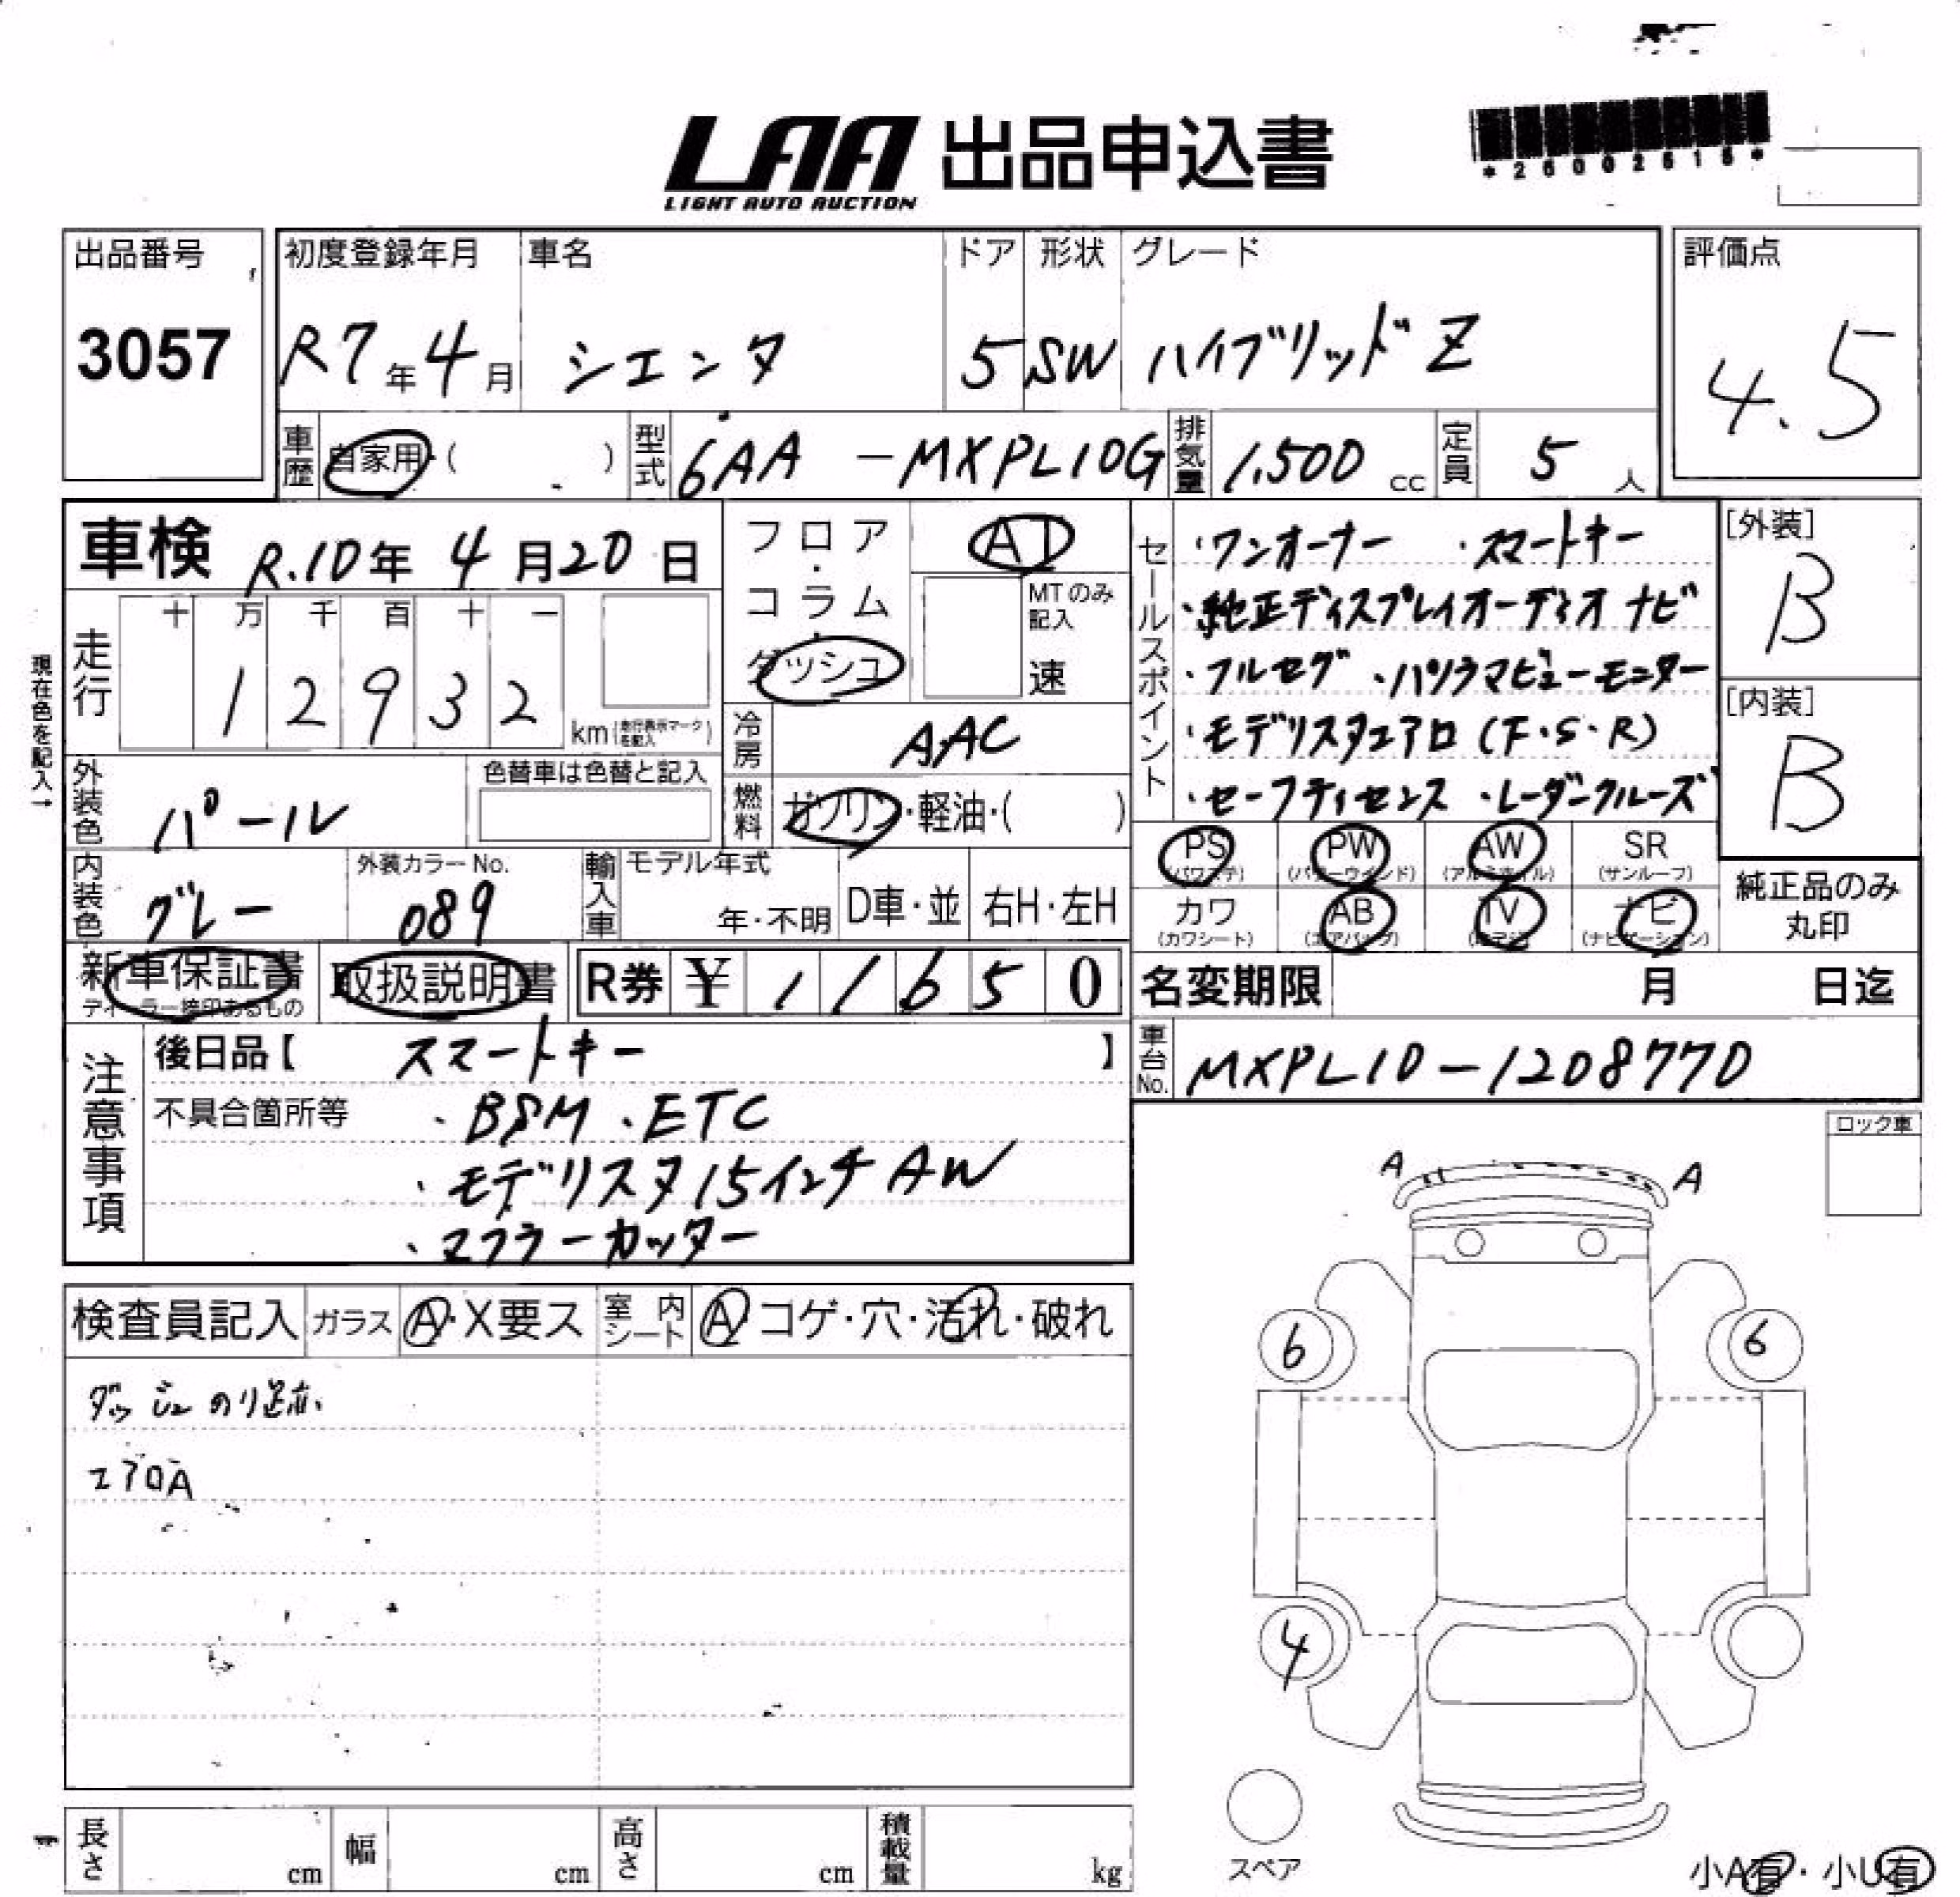 LAA 出品申込書
LIGHT AUTO AUCTION
*26002615*
出品番号
3057
初度登録年月
R7年4月
車名
シエンタ
ドア
5
形状
SW
グレード
ハイブリッドZ
評価点
4.5
車歴
自家用・( )
型式
6AA-MXPL10G
排気量
1,500 cc
定員
5 人
車検 R.10年 4月20日
フロア・コラム・ダッシュ
AT
MTのみ記入
速
現在色を記入→
走行
十 万 千 百 十 一
1 2 9 3 2 km(走行表示マークを記入)
冷房
AAC
外装色
パール
色替車は色替と記入
燃料
ガソリン・軽油・( )
内装色
グレー
外装カラーNo.
089
輸入車
モデル年式
年・不明
D車・並
右H・左H
新車保証書
ディーラー捺印あるもの
取扱説明書
R券 ¥ 11650
セールスポイント
・ワンオーナー ・スマートキー
・純正ディスプレイオーディオナビ
・フルセグ ・パノラマビューモニター
・モデリスタエアロ(F・S・R)
・セーフティセンス ・レーダークルーズ
[外装]
B
[内装]
B
PS (パワステ)
PW (パワーウインド)
AW (アルミホイル)
SR (サンルーフ)
カワ (カワシート)
AB (エアバッグ)
TV (テレビ)
ナビ (ナビゲーション)
純正品のみ丸印
名変期限 月 日迄
車台No.
MXPL10-1208770
注意事項
後日品【 スマートキー 】
不具合箇所等 ・BSM ・ETC
・モデリスタ15インチAW
・マフラーカッター
ロック車
A A
6 6
4
スペア
小A有・小U有
検査員記入 ガラス A・X要ス 室内シート A コゲ・穴・汚れ・破れ
ダッシュのり跡
エアロA
長さ cm
幅 cm
高さ cm
積載量 kg